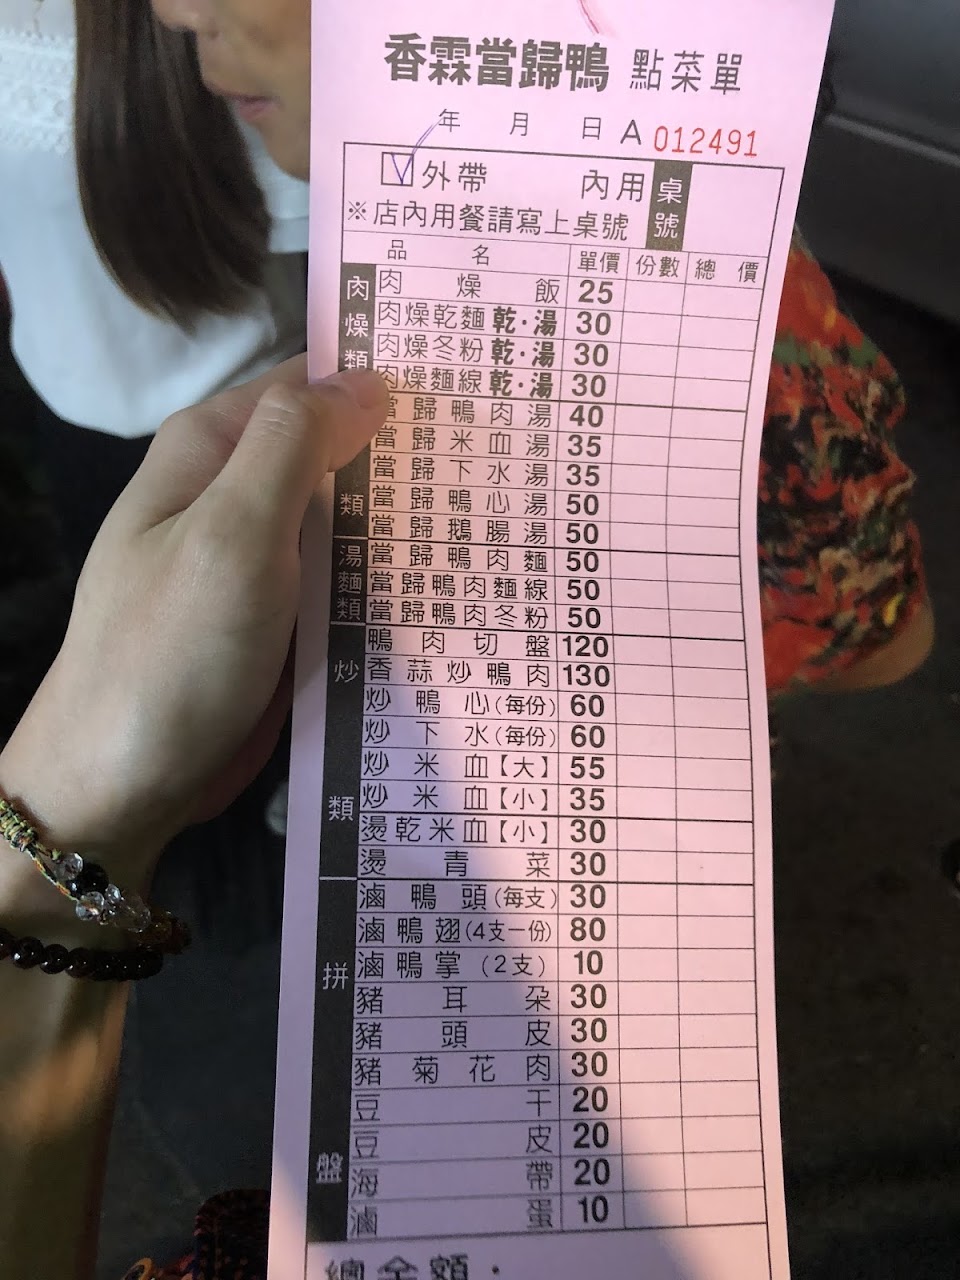 香霖當歸鴨 點菜單
年 月 日 A 012491
☑外帶 內用 桌號
※店內用餐請寫上桌號
品名 單價 份數 總價
肉燥類
肉燥飯 25
肉燥乾麵 乾·湯 30
肉燥冬粉 乾·湯 30
肉燥麵線 乾·湯 30
類
當歸鴨肉湯 40
當歸米血湯 35
當歸下水湯 35
當歸鴨心湯 50
當歸鵝腸湯 50
湯麵類
當歸鴨肉麵 50
當歸鴨肉麵線 50
當歸鴨肉冬粉 50
炒類
鴨肉切盤 120
香蒜炒鴨肉 130
炒鴨心(每份) 60
炒下水(每份) 60
炒米血【大】 55
炒米血【小】 35
燙乾米血【小】 30
燙青菜 30
拼盤
滷鴨頭(每支) 30
滷鴨翅(4支一份) 80
滷鴨掌(2支) 10
豬耳朵 30
豬頭皮 30
豬菊花肉 30
豆干 20
豆皮 20
海帶 20
滷蛋 10
總金額：